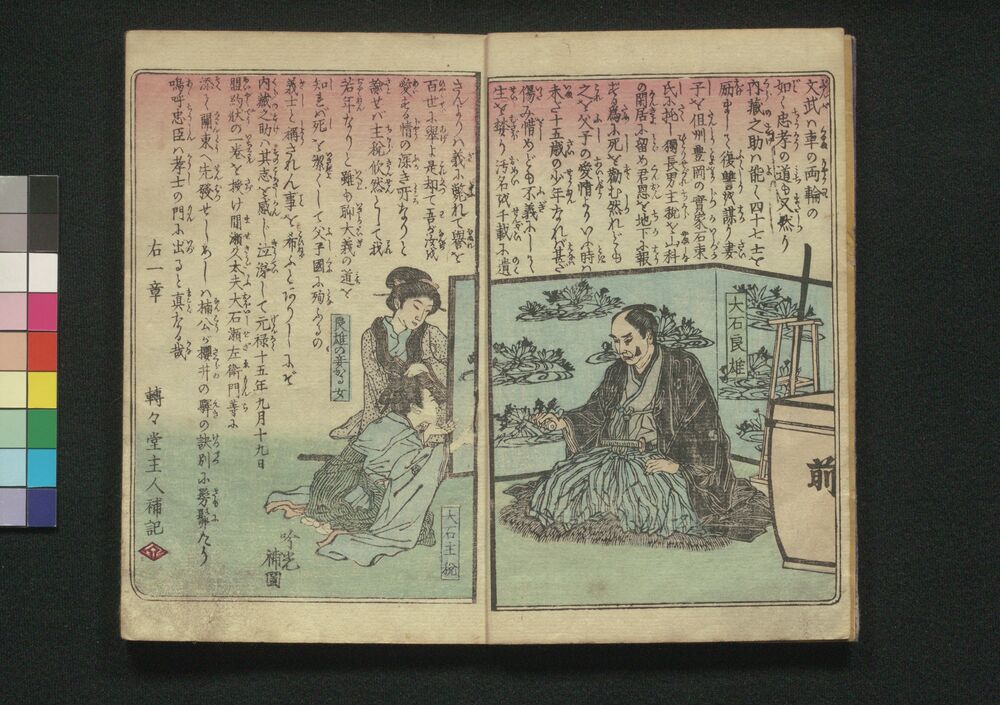 文武ハ車の両輪の
如く忠孝の道も又然り
内藏之助ハ能く四十七士を
厲まして復讐を謀り妻
子を但州豊岡の實家石東
氏に托し獨長男主税を山科
の閑居に留め君恩を地下に報
ずる為に死を勧む然れども
之父子の愛情よりいふ時ハ
未だ十五歳の少年なれバ甚だ
傷み惜めども不義にして
生を偸み汚名を千載に遺
さんよりハ義に斃れて譽を
百世に舉よ是却て吾汝を
愛する情の深き所なりと
諭せバ主税欣然として我
若年なりと雖も聊大義の道を
知る已死を潔くして父子國に殉ふるの
義士と稱されん事を希ふとありしにぞ
内藏之助ハ其志を感じ泣涕して元禄十五年九月十九日
盟約状の巻を授け間瀬久太夫大石瀬左衛門等に
添て關東へ先發せしめしハ楠公が櫻井の驛の訣別に髣髴たり
嗚呼忠臣ハ孝士の門に出ると真なる哉
右一章
轉々堂主人補記
大石良雄
前
良雄の妾かる女
大石主税
吟光
補圖